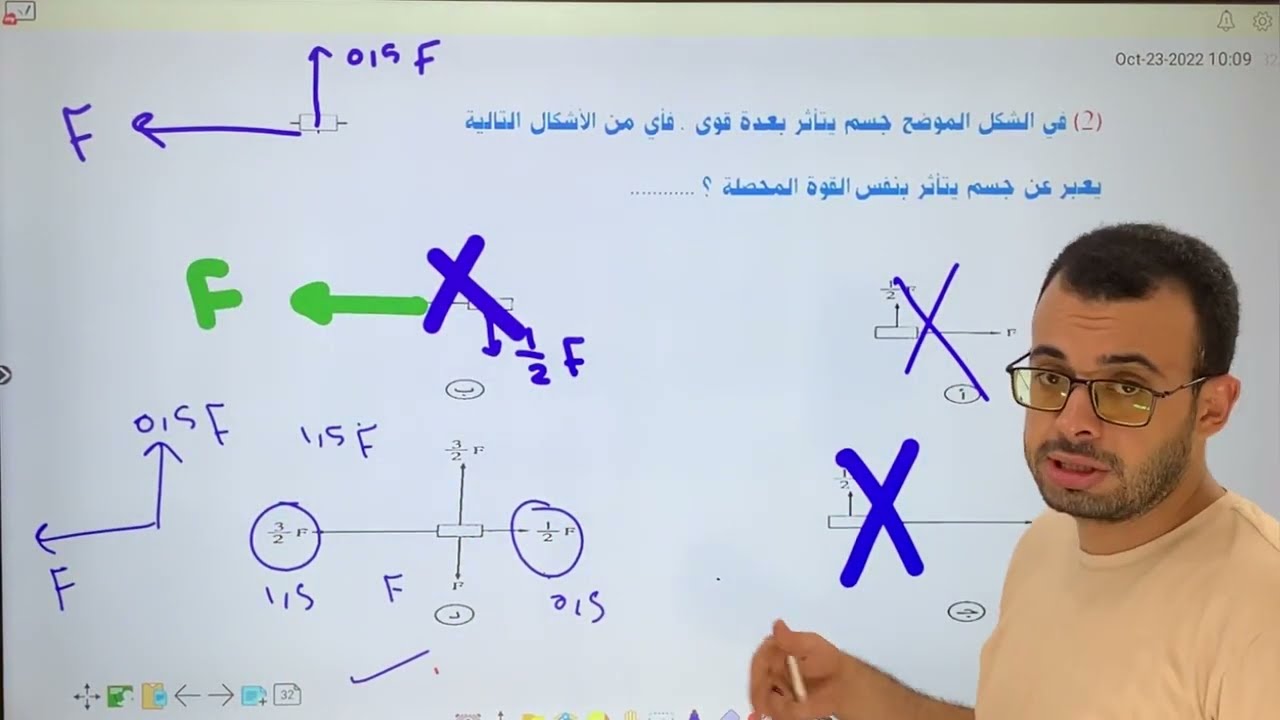 Oct-23-2022 10:09
(2) في الشكل الموضح جسم يتأثر بعدة قوى . فأي من الأشكال التالية
يعبر عن جسم يتأثر بنفس القوة المحصلة ؟ ............
0,5 F
F
F
1/2 F
ب
F
أ
0,5 F
F
1,5 F
3/2 F
3/2 F
1/2 F
1,5
F
F
0,5
د
1/2
ج
32